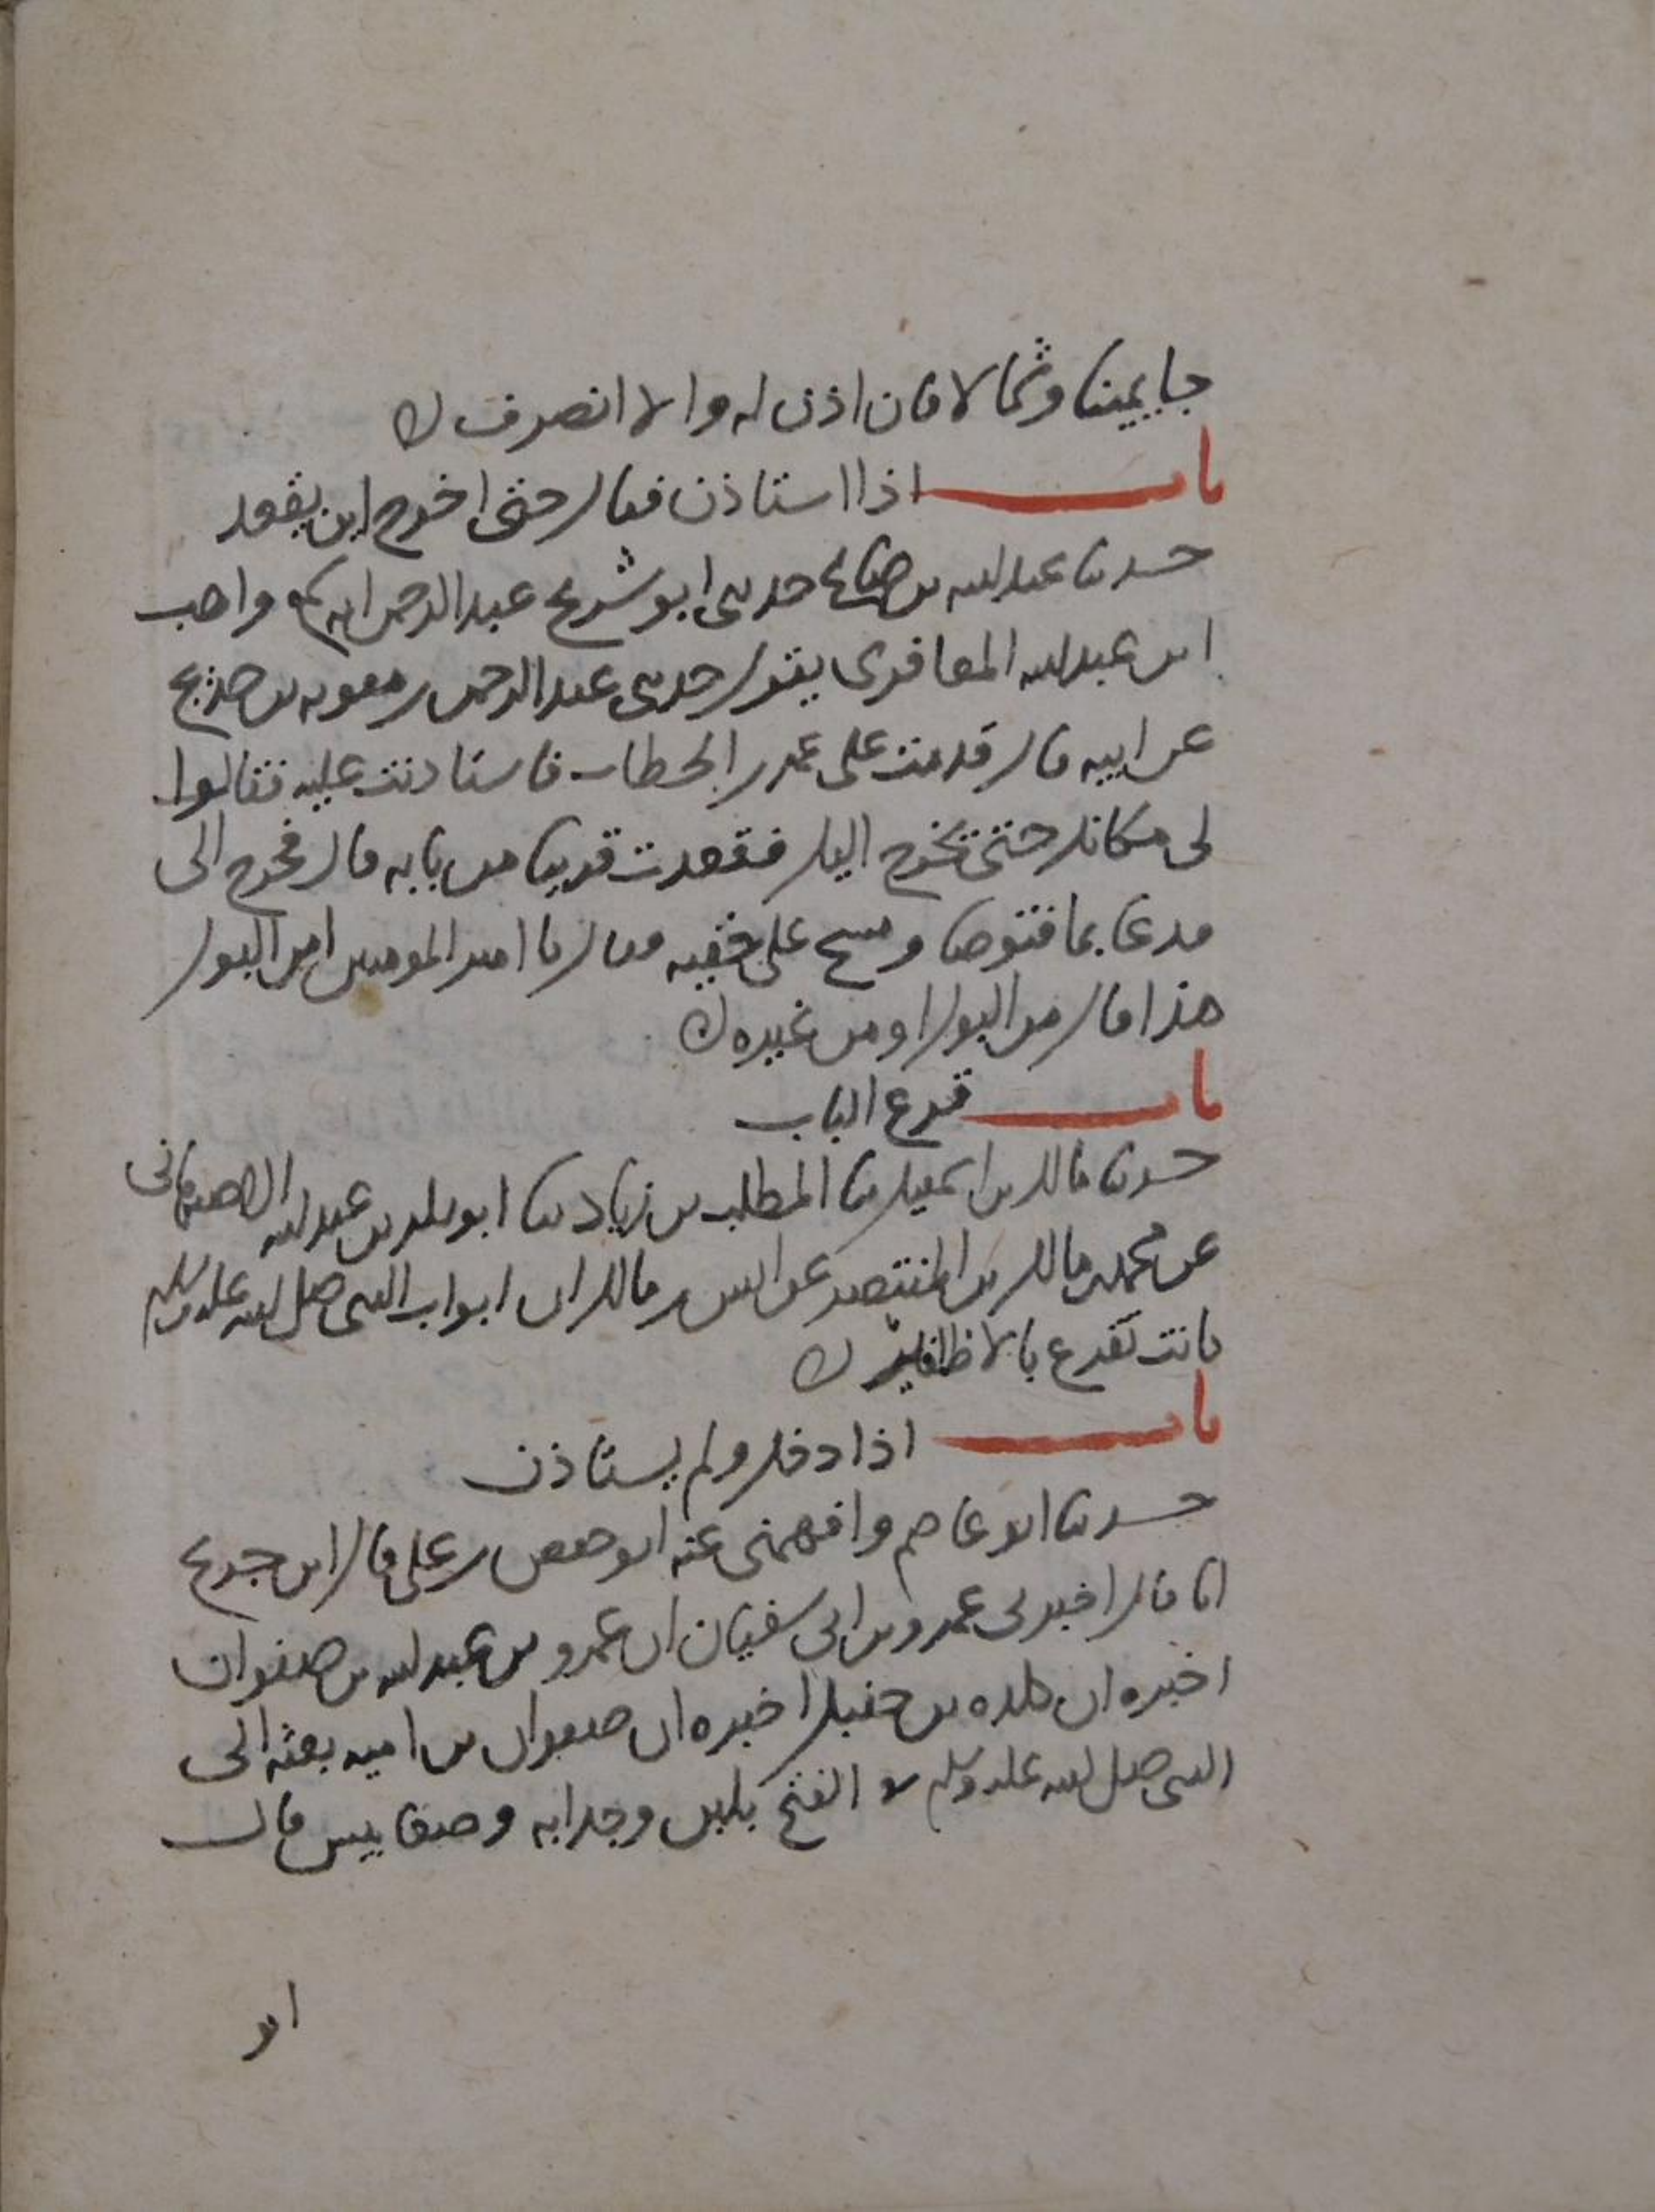 جا يمينا وشمالا فان اذن له والا انصرف ك
باب اذا استاذن فقال حتى اخرج اين يقعد
حدثنا عبد الله بن صالح حدثنى ابو شريح عبد الرحمن انه سمع واهب
ابن عبد الله المعافرى يقول حدثنى عبد الرحمن بن معوية بن حديج
عن ابيه قال قدمت على عمر بن الخطاب فاستاذنت عليه فقالوا
لى مكانك حتى يخرج اليك فقعدت قريبا من بابه قال فخرج الى
فدعا بما فتوضا ومسح على خفيه فقال يا امير المومنين امن البول
هذا قال من البول او من غيره ك
باب قرع الباب
حدثنا مالك بن اسمعيل ثنا المطلب بن زياد ثنا ابو بكر بن عبد الله الاصفهانى
عن محمد بن مالك بن المنتصر عن انس بن مالك ان ابواب النبى صلى الله عليه وسلم
كانت تقرع بالاظافير ك
باب اذا دخل ولم يستاذن
حدثنا ابو عاصم وافهمنى عنه ابو حفص بن على قال ابن جريج
انا قال اخبرنى عمرو بن ابى سفيان ان عمرو بن عبد الله بن صفوان
اخبره ان كلده بن حنبل اخبره ان صفوان بن امية بعثه الى
النبى صلى الله عليه وسلم فى الفتح بلبن وجداية وضغابيس قال
ابو